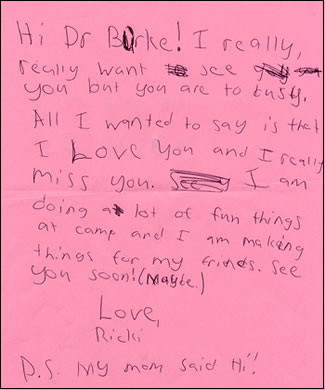 Hi Dr Burke! I really,
really want to see
you but you are to busy.
All I wanted to say is that
I Love You and I really
miss you. I am
doing a lot of fun things
at camp and I am making
things for my friends. See
you soon! (Maybe.)
Love,
Ricki
P.S. My mom said Hi!!